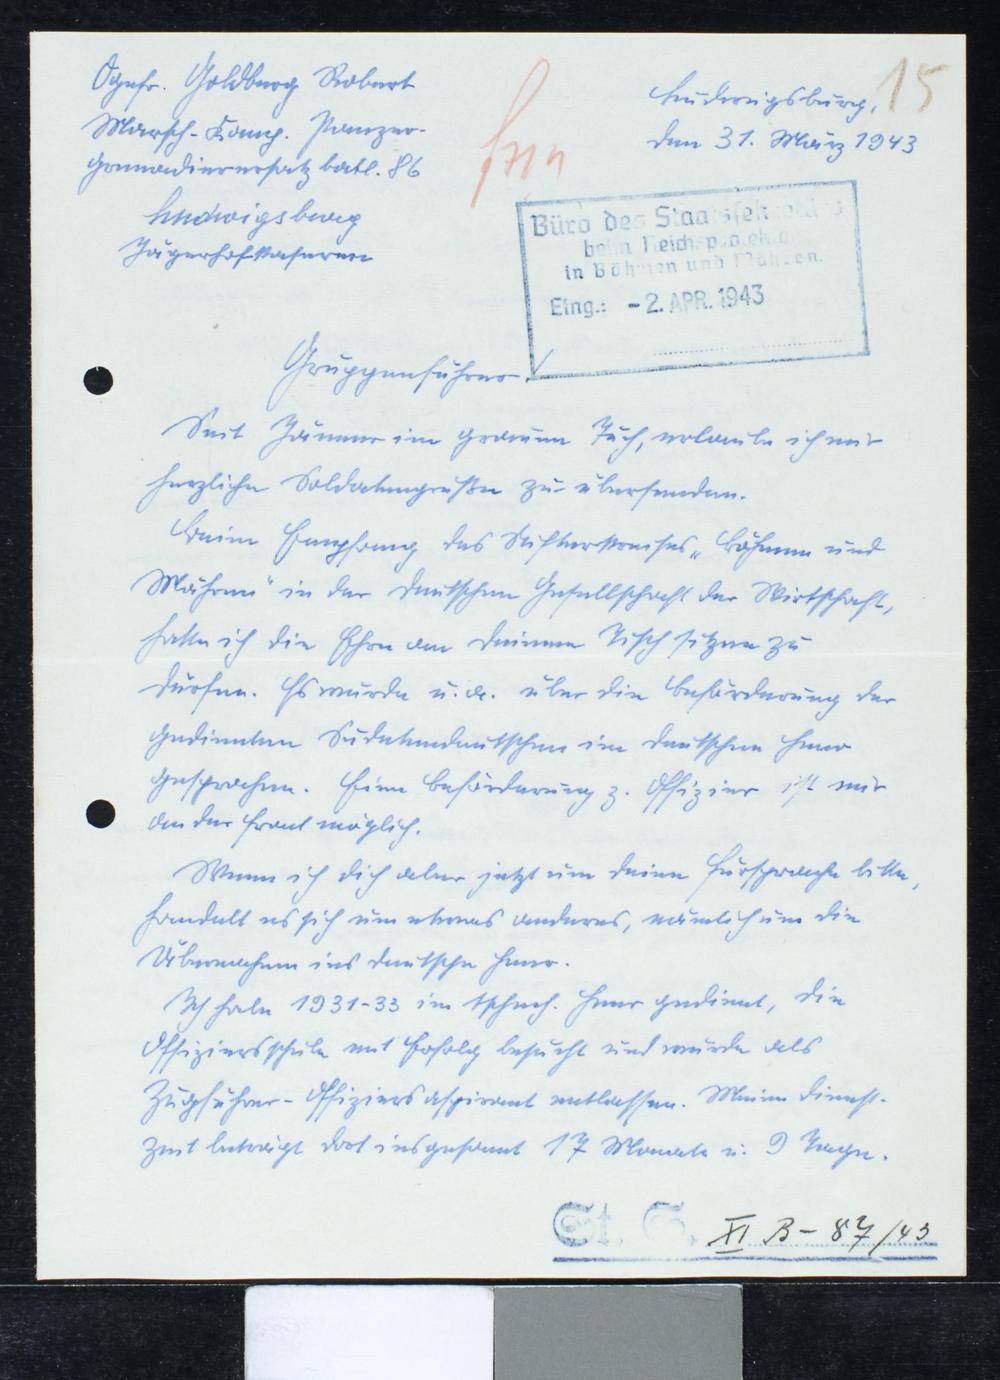 Ogefr. Goldberg Robert
Marsch-Komp. Panzer-
grenadierersatzbatl. 86
Ludwigsburg
Jägerhofkaserne
Ludwigsburg,
den 31. März 1943
15
Büro des Staatssekretärs
beim Reichsprotektor
in Böhmen und Mähren.
Eing.: - 2. APR. 1943
Gruppenführer.
Seit Jänner im grauen Tuch, erlaube ich mir
herzliche Soldatengrüße zu übersenden.
Beim Empfang des Stifterkreises „Böhmen und
Mähren" in der deutschen Gesellschaft der Wirtschaft,
hatte ich die Ehre an Deinem Tisch sitzen zu
dürfen. Es wurde u. a. über die Beförderung der
gedienten Sudetendeutschen im deutschen Heer
gesprochen. Eine Beförderung z. Offizier ist nur
an der Front möglich.
Wenn ich Dich aber jetzt um Deine Fürsprache bitte,
handelt es sich um etwas anderes, nämlich um die
Übernahme ins deutsche Heer.
Ich habe 1931-33 im tschech. Heer gedient, die
Offiziersschule mit Erfolg besucht und wurde als
Zugsführer-Offiziersaspirant entlassen. Meine Dienst-
zeit beträgt dort insgesamt 17 Monate u. 9 Tage.
St. S. XI B - 87/43